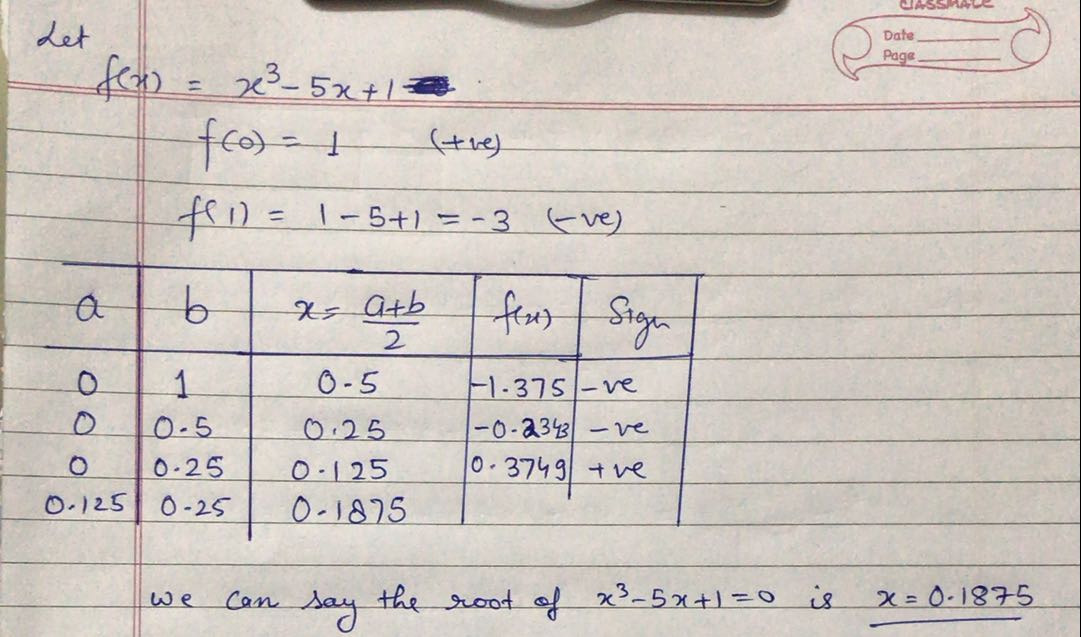 CLASSMATE
Date
Page
Let
f(x) = x³ - 5x + 1
f(0) = 1 (+ve)
f(1) = 1 - 5 + 1 = -3 (-ve)
a b x = (a+b)/2 f(x) Sign
0 1 0.5 -1.375 -ve
0 0.5 0.25 -0.2343 -ve
0 0.25 0.125 0.3749 +ve
0.125 0.25 0.1875
we can say the root of x³-5x+1=0 is x=0.1875